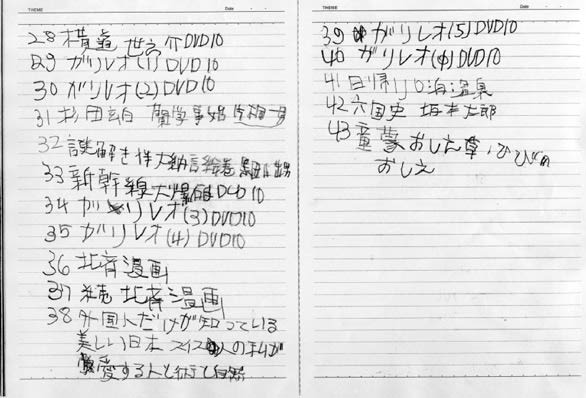 THEME Date
28 横道 世之介 DVD10
29 ガリレオ(1) DVD10
30 ガリレオ(2) DVD10
31 杉田玄白 蘭学事始 片桐一男
32 謎解き 伴大納言絵巻 黒田日出男
33 新幹線大爆破DVD10
34 ガリレオ(3) DVD10
35 ガリレオ(4) DVD10
36 北斎漫画
37 続 北斎漫画
38 外国人だけが知っている
美しい日本 スイス人の私が
愛する人と街と自然
THEME Date
39 ガリレオ(5) DVD10
40 ガリレオ(中) DVD10
41 日帰り 温泉
42 六国史 坂本太郎
43 童蒙おしえ草、ひびの
おしえ